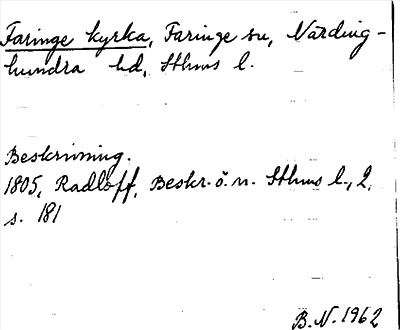 Faringe kyrka, Faringe sn, Närding-
hundra hd, Sthms l.
Beskrivning.
1805, Radloff, Beskr. ö. n. Sthms l., 2,
s. 181
B.N. 1962